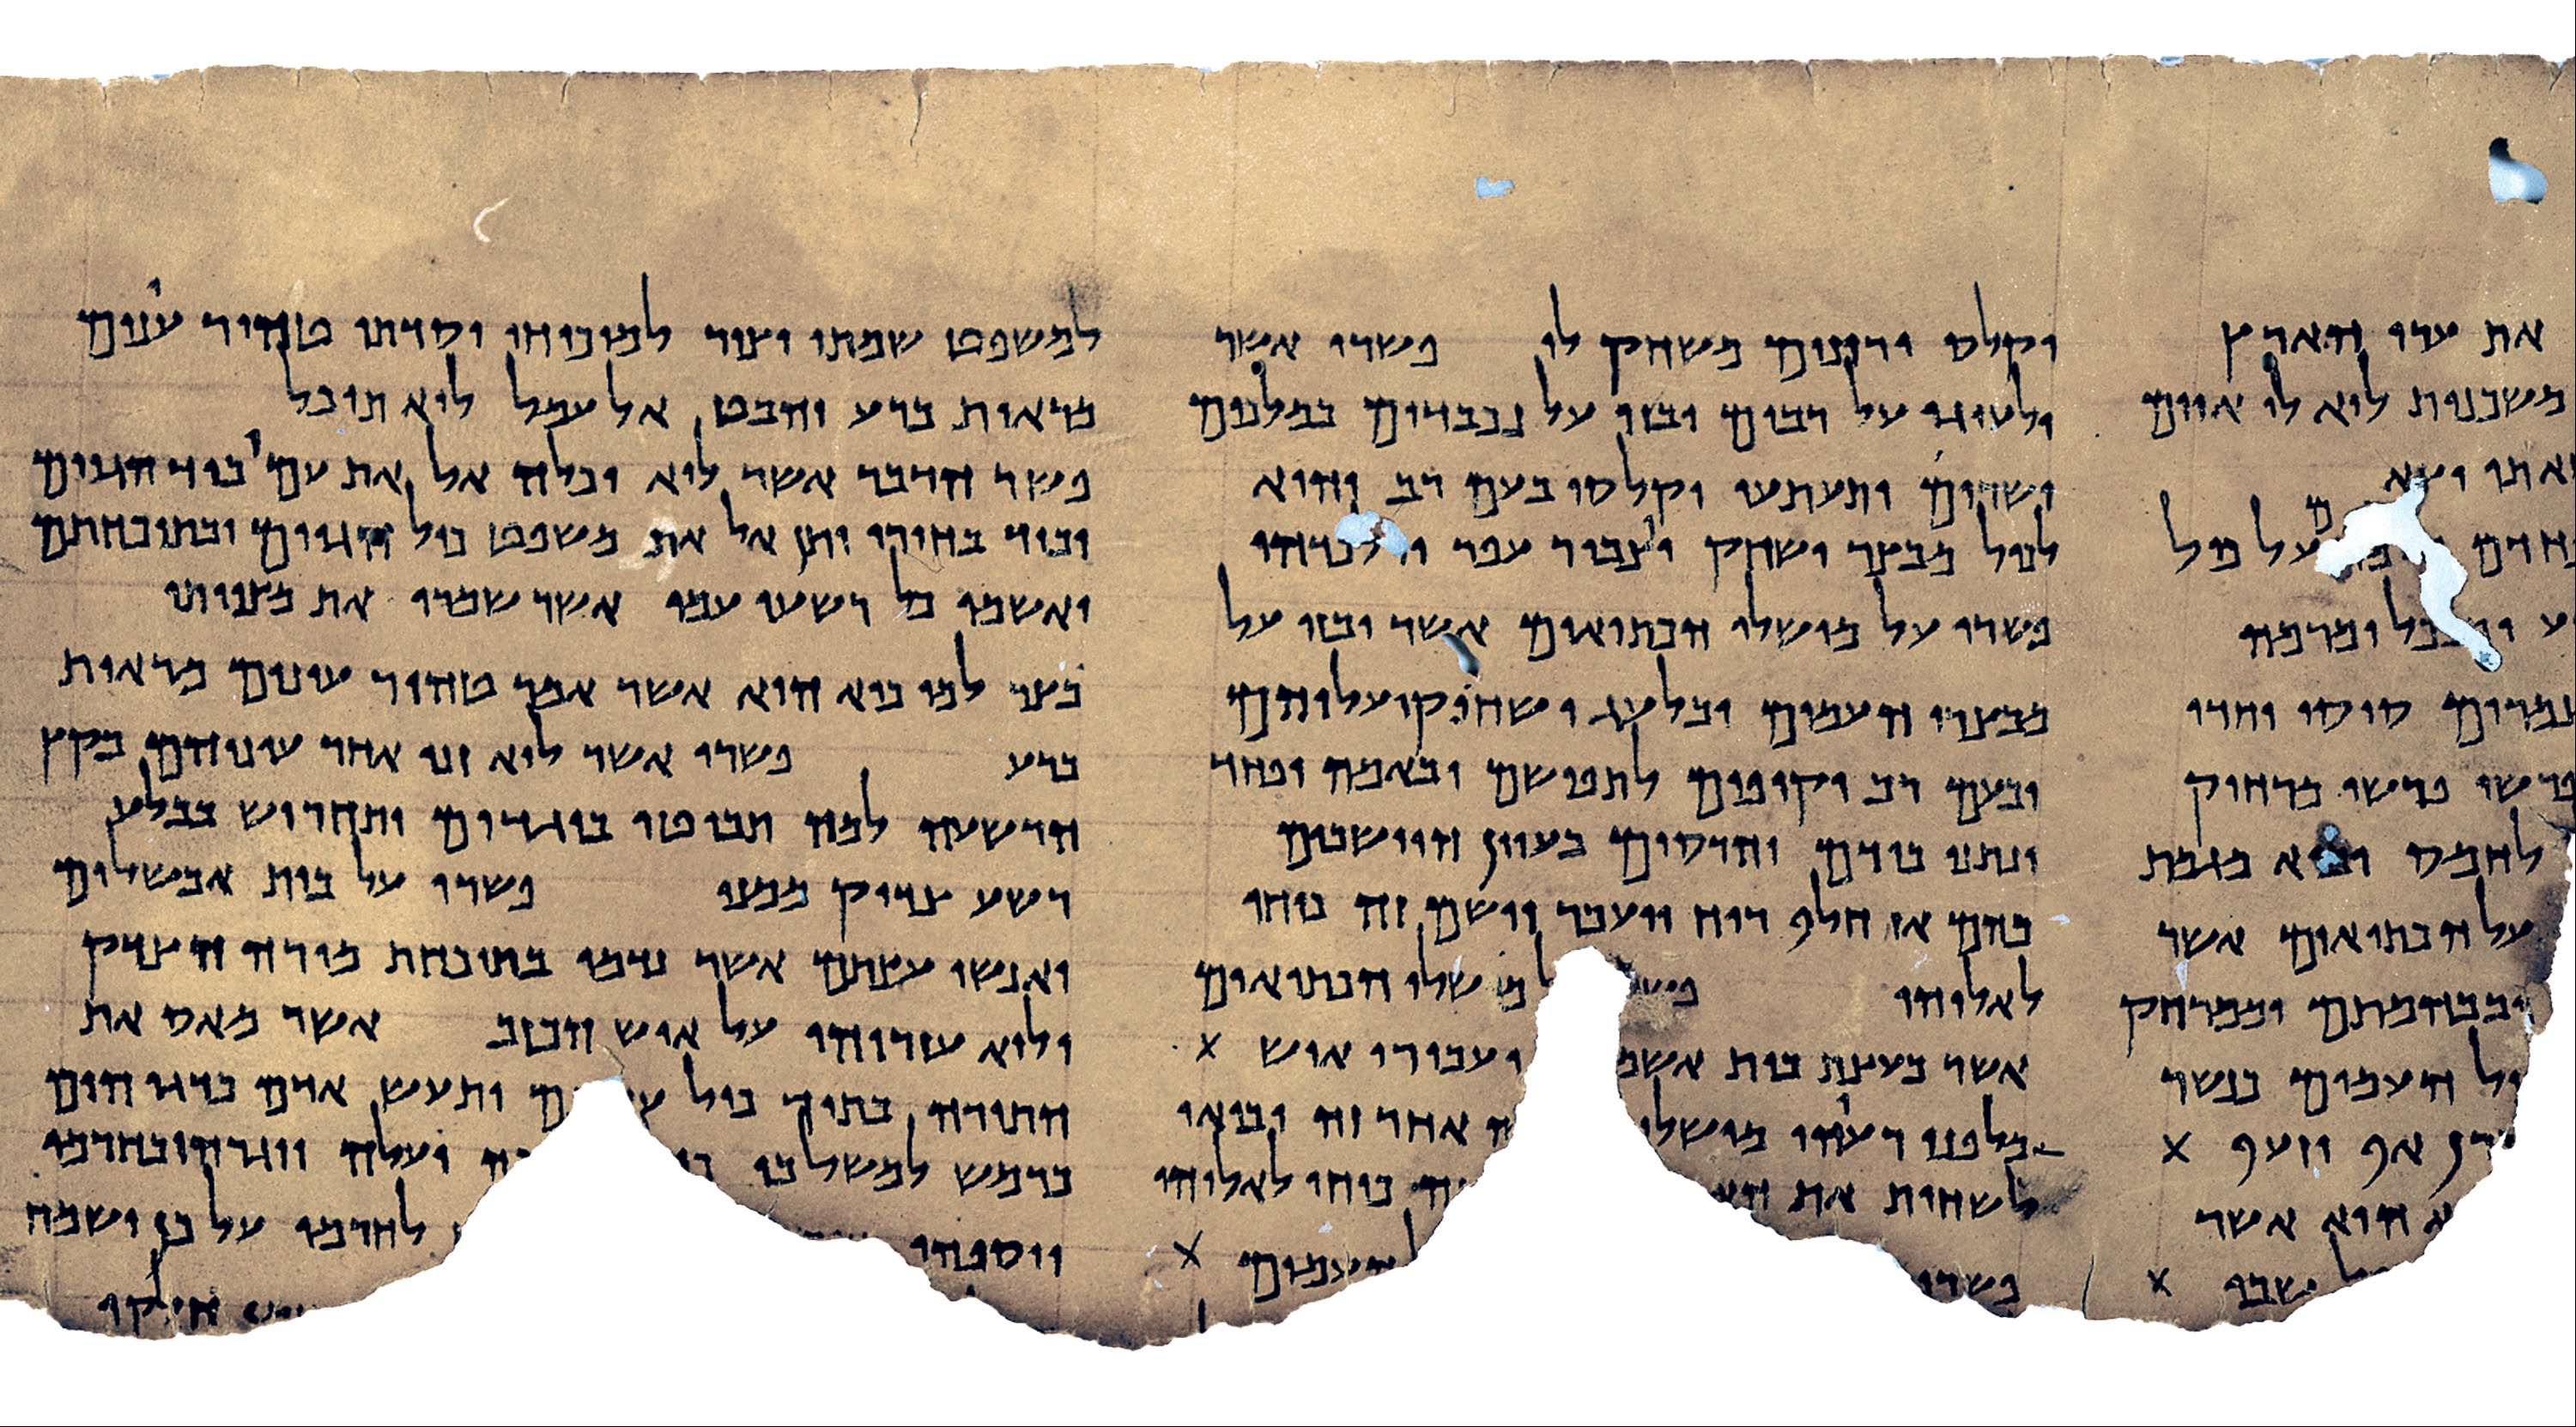 את ערי הארץ
משכנות לוא לו איום
אתו יצא
על כול
ומרמה
מנמרים סוסו וחדו
פרשו מרחוק
לחמס יבוא מגמת
על הכתיאים אשר
ובבהמתם וממרחק
העמים כנשר
אף וזעף X
הוא אשר
שבי X
יקלס ורזנים משחק לו פשרו אשר
ילעיגו על רבים ובזו על נכבדים במלכים
ושרים יתעתעו וקלסו בעם רב והוא
לכול מבצר ישחק ויצבור עפר וילכדהו
פשרו על מושלי הכתיאים אשר יבזו על
מבצרי העמים ובלעג ישחוקו עליהם
ובעם רב יקיפום לתפושם ובאמה ופחד
ינתנו בידם והרסום בעוון היושבים
בהם אז חלף רוח ויעבר וישם זה כוחו
לאלוהו פש ל מושלי הכתיאים
אשר בעצת בית אשמ יעבורו איש X
מלפני רעיהו מושלי ה אחר זה יבואו
לשחית את הא ה כוחו לאלוהו
פשרו העמים X
למשפט שמתו וצור למוכיחו יסדתו טהור עינים
מראות ברע והבט אל עמל לוא תוכל
פשר הדבר אשר לוא יכלה אל את עמו ביד הגוים
וביד בחירו יתן אל את משפט כול הגוים ובתוכחתם
יאשמו כל רשעי עמו אשר שמרו את מצוותו
בצר למו כיא הוא אשר אמר טהור עינים מראות
ברע פשרו אשר לוא זנו אחר עיניהם בקץ
הרשעה למה תביטו בוגדים ותחריש בבלע
רשע צדיק ממנו פשרו על בית אבשלום
ואנשי עצתם אשר נדמו בתוכחת מורה הצדק
ולוא עזרוהו על איש הכזב אשר מאס את
התורה בתוך כול ע ם ותעש אדם כדגי הים
כרמש למשל בו יעלה ויגרהו בחרמו
ויספהו לחרמו על כן ישמח
חלקו